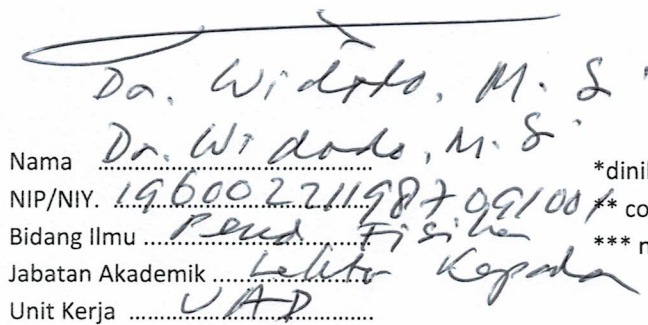 Dr. Widodo, M. Si
Nama Dr. Widodo, M. Si *dinil
NIP/NIY. 196002211987091001 ** co
Bidang Ilmu Pend Fisika *** n
Jabatan Akademik Lektor Kepala
Unit Kerja UAD